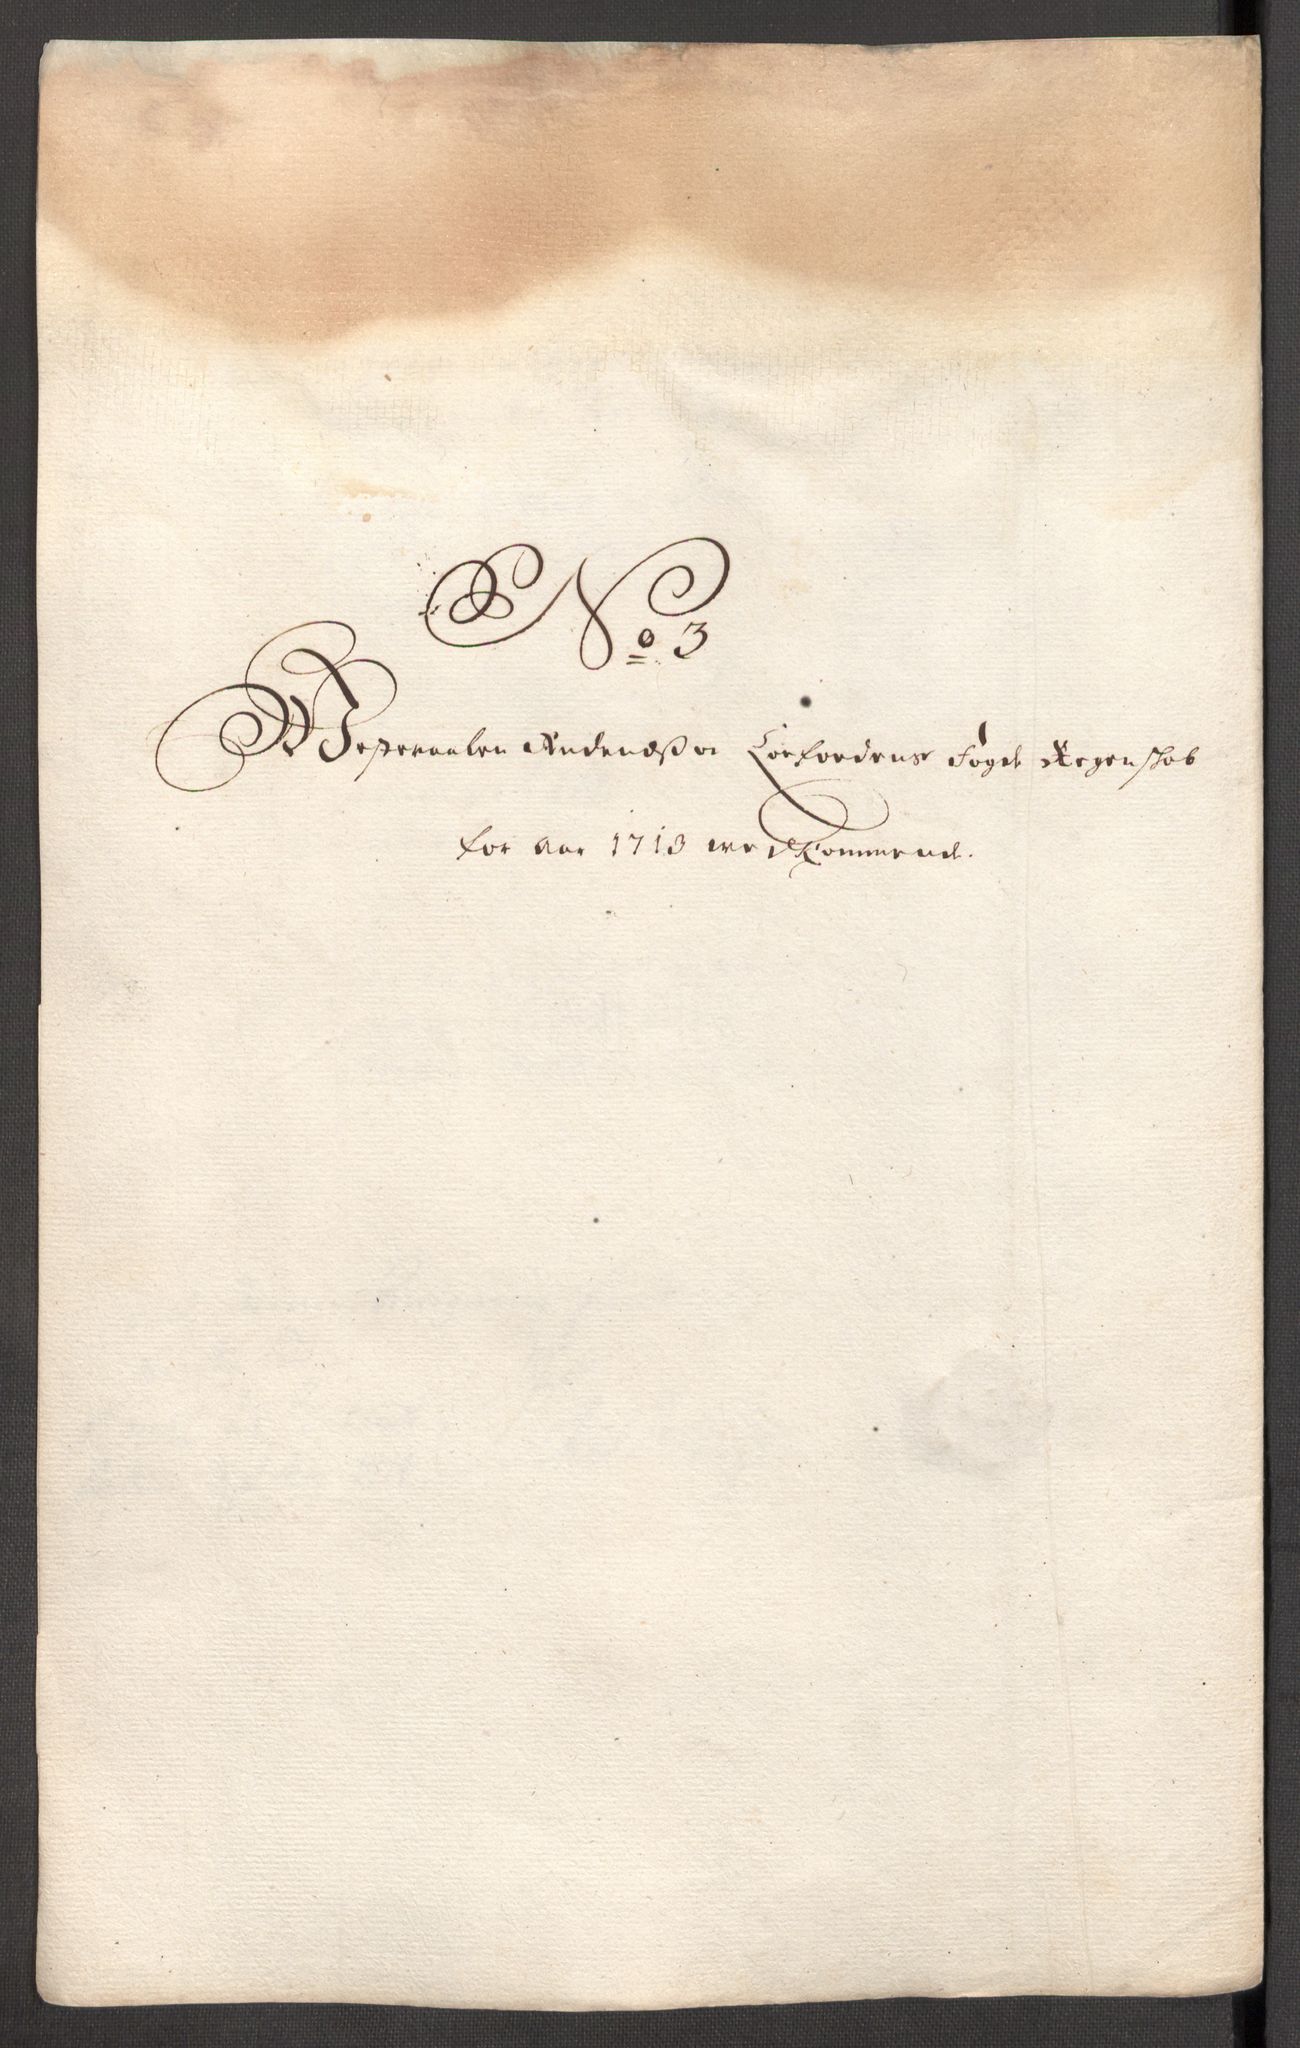 No 3
Westeraalen Andenæß oc Loffoedens Fogde Regenskab
for Aar 1713 vedkommende.